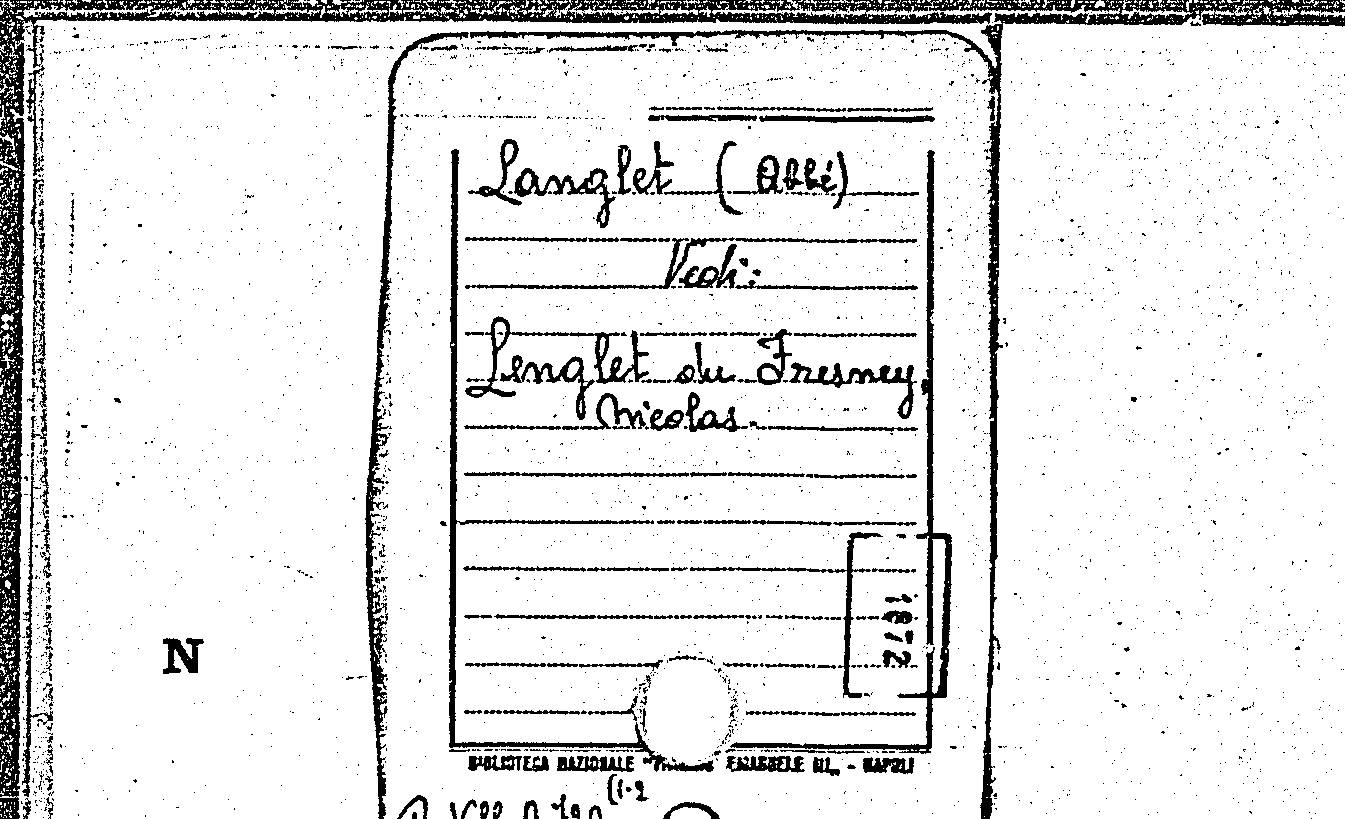 Langlet (Abbé)
Vedi:
Lenglet du Fresney,
Nicolas.
1872
N
BIBLIOTECA NAZIONALE "VITTORIO EMANUELE III" - NAPOLI
(1-2